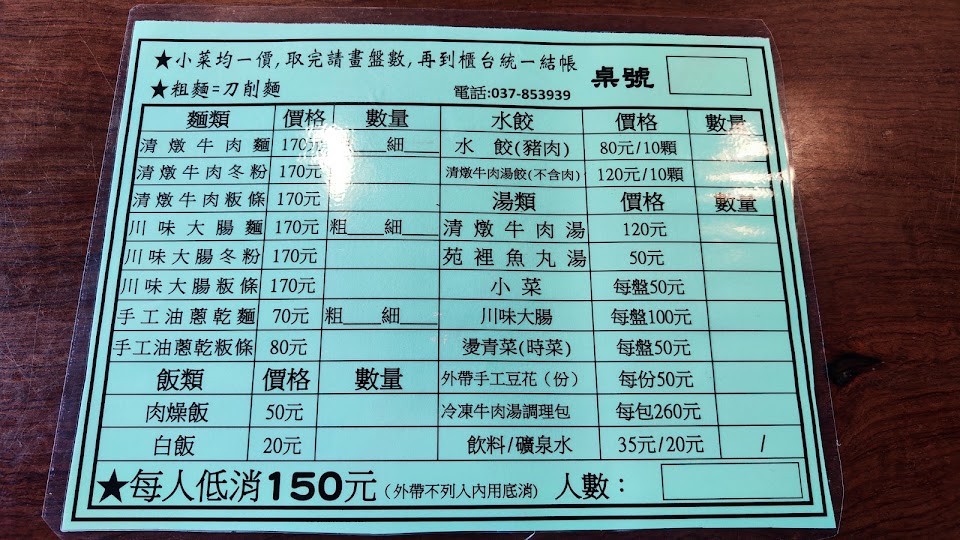 ★小菜均一價,取完請畫盤數,再到櫃台統一結帳
★粗麵=刀削麵
電話:037-853939 桌號
麵類 價格 數量 水餃 價格 數量
清燉牛肉麵 170元 細 水 餃(豬肉) 80元/10顆
清燉牛肉冬粉 170元 清燉牛肉湯餃(不含肉) 120元/10顆
清燉牛肉粄條 170元 湯類 價格 數量
川味大腸麵 170元 粗___細___ 清燉牛肉湯 120元
川味大腸冬粉 170元 苑裡魚丸湯 50元
川味大腸粄條 170元 小菜 每盤50元
手工油蔥乾麵 70元 粗___細___ 川味大腸 每盤100元
手工油蔥乾粄條 80元 燙青菜(時菜) 每盤50元
飯類 價格 數量 外帶手工豆花(份) 每份50元
肉燥飯 50元 冷凍牛肉湯調理包 每包260元
白飯 20元 飲料/礦泉水 35元/20元 /
★每人低消150元(外帶不列入內用底消) 人數：